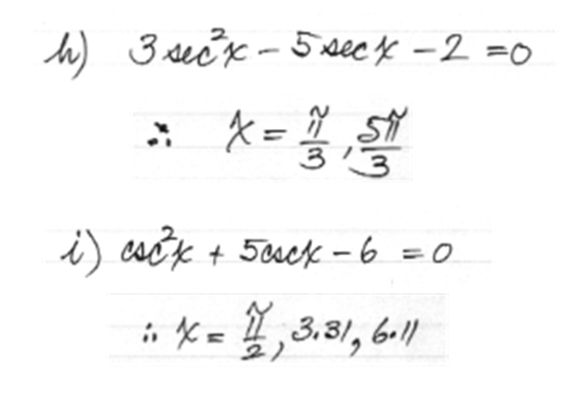 h) 3 sec²x - 5 sec x - 2 = 0
∴ x = π/3, 5π/3
i) csc²x + 5 csc x - 6 = 0
∴ x = π/2, 3.31, 6.11